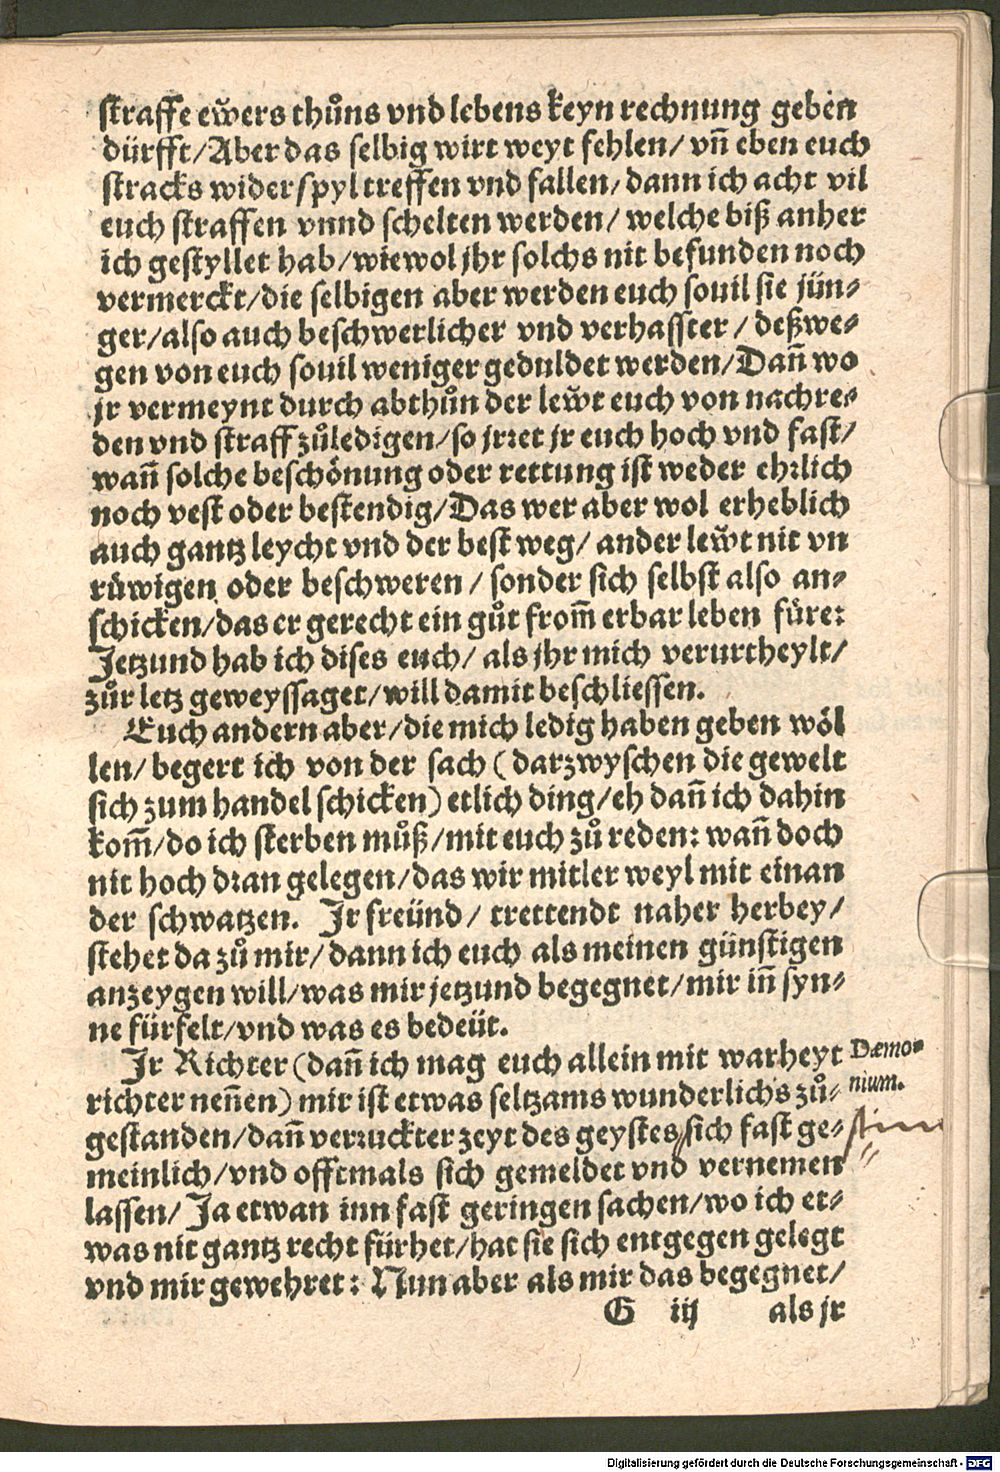 straffe ewers thuͦns vnd lebens keyn rechnung geben
dürfft/Aber das selbig wirt weyt fehlen/ vñ eben euch
stracks widerspyl treffen vnd fallen/ dann ich acht vil
euch straffen vnnd schelten werden/ welche biß anher
ich gestyllet hab/wiewol jhr solchs nit befunden noch
vermerckt/die selbigen aber werden euch souil sie jün⸗
ger/also auch beschwerlicher vnd verhasster/ deßwe⸗
gen von euch souil weniger geduldet werden/Dañ wo
jr vermeynt durch abthuͦn der lewͤt euch von nachre⸗
den vnd straff zuͦledigen/so jrꝛet jr euch hoch vnd fast/
wañ solche beschönung oder rettung ist weder ehꝛlich
noch vest oder bestendig/Das wer aber wol erheblich
auch gantz leycht vnd der best weg/ ander lewͤt nit vn
rüwigen oder beschweren/ sonder sich selbst also an⸗
schicken/das er gerecht ein guͦt from̃ erbar leben fuͤre:
Jetzund hab ich dises euch/ als jhr mich verurtheylt/
zuͦr letz geweyssaget/will damit beschliessen.
Euch andern aber/die mich ledig haben geben wöl
len/ begert ich von der sach (darzwyschen die gewelt
sich zum handel schicken) etlich ding/eh dañ ich dahin
kom̃/do ich sterben muͦß/mit euch zuͦ reden: wañ doch
nit hoch dꝛan gelegen/das wir mitler weyl mit einan
der schwatzen. Jr freünd/ trettendt naher herbey/
stehet da zuͦ mir/ dann ich euch als meinen günstigen
anzeygen will/was mir jetzund begegnet/mir iñ syn⸗
ne fürfelt/vnd was es bedeüt.
Jr Richter (dañ ich mag euch allein mit warheyt
Dæmo⸗
richter neñen) mir ist etwas seltzams wunderlichs zuͦ⸗
nium.
gestanden/dañ verꝛuckter zeyt des geystes sich fast ge⸗
stim
meinlich/vnd offtmals sich gemeldet vnd vernemen
lassen/ Ja etwan inn fast geringen sachen/wo ich et⸗
was nit gantz recht fürhet/hat sie sich entgegen gelegt
vnd mir gewehret: Nun aber als mir das begegnet/
G iij als jr
Digitalisierung gefördert durch die Deutsche Forschungsgemeinschaft - DFG